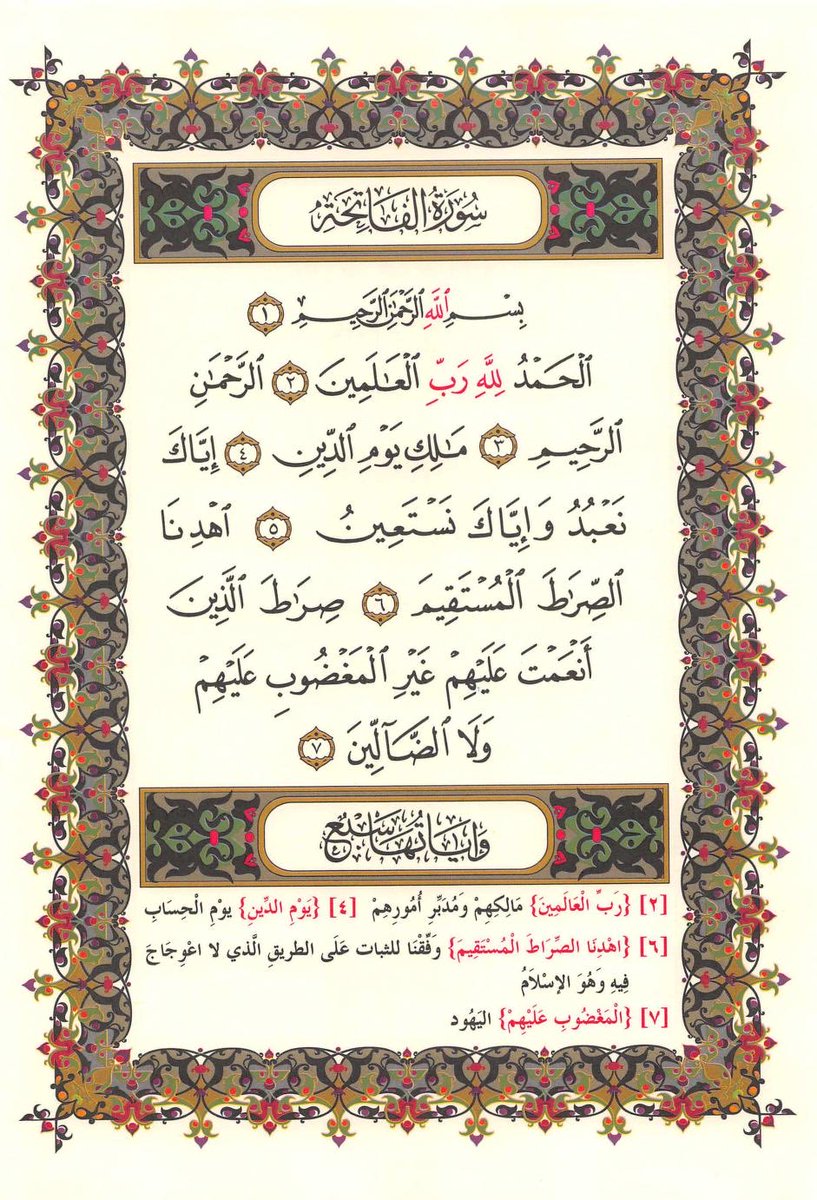 سُورَةُ الفَاتِحَةِ
بِسْمِ ٱللَّهِ ٱلرَّحْمَٰنِ ٱلرَّحِيمِ ١
ٱلْحَمْدُ لِلَّهِ رَبِّ ٱلْعَٰلَمِينَ ٢ ٱلرَّحْمَٰنِ
ٱلرَّحِيمِ ٣ مَٰلِكِ يَوْمِ ٱلدِّينِ ٤ إِيَّاكَ
نَعْبُدُ وَإِيَّاكَ نَسْتَعِينُ ٥ ٱهْدِنَا
ٱلصِّرَٰطَ ٱلْمُسْتَقِيمَ ٦ صِرَٰطَ ٱلَّذِينَ
أَنْعَمْتَ عَلَيْهِمْ غَيْرِ ٱلْمَغْضُوبِ عَلَيْهِمْ
وَلَا ٱلضَّآلِّينَ ٧
وَآيَاتُهَا سَبْعٌ
[٢] {رَبِّ الْعَالَمِينَ} مَالِكِهِمْ وَمُدَبِّرِ أُمُورِهِمْ [٤] {يَوْمِ الدِّينِ} يومِ الْحِسَابِ
[٦] {اهْدِنَا الصِّرَاطَ الْمُسْتَقِيمَ} وَفِّقْنَا للثبات عَلَى الطريقِ الَّذي لا اعْوِجَاجَ
فِيهِ وَهُوَ الإسْلَامُ
[٧] {الْمَغْضُوبِ عَلَيْهِمْ} اليَهُود